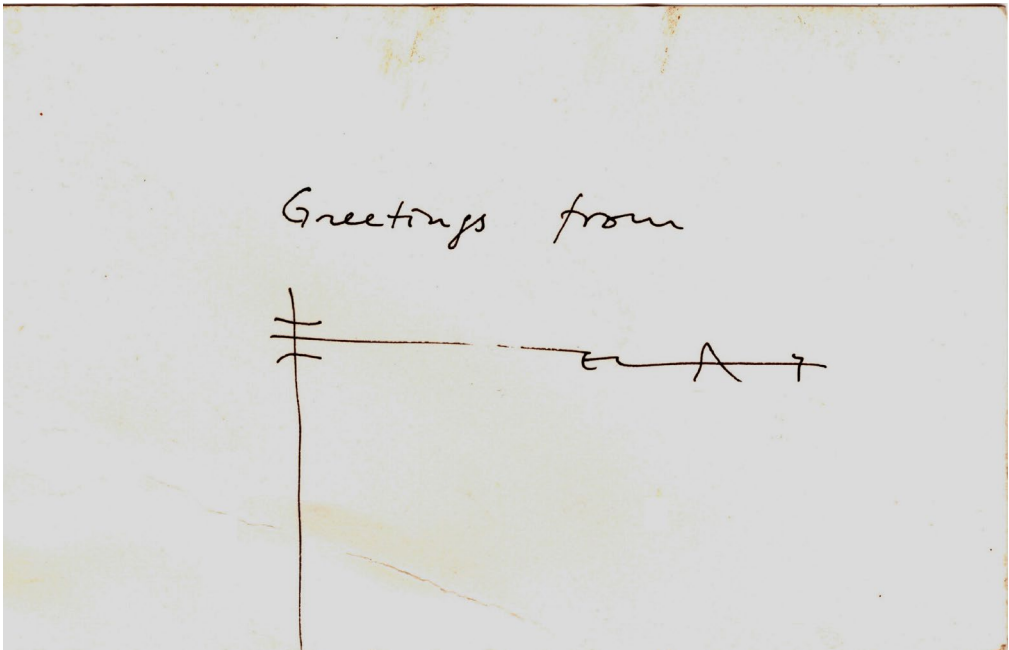 Greetings from